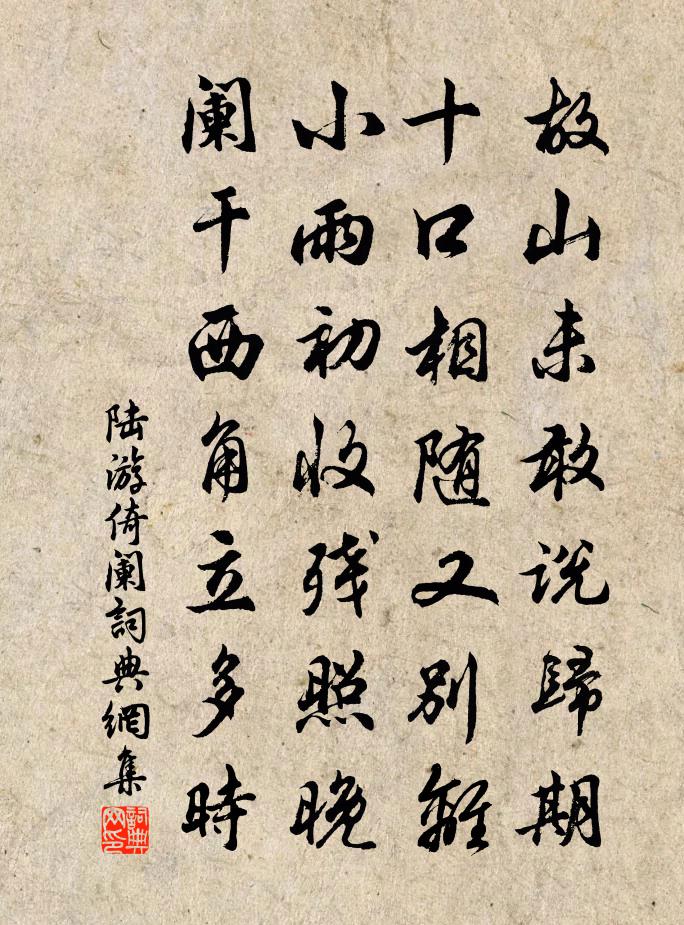 故山未敢説歸期
十口相随又别離
小雨初收残照晚
阑干西角立多時
陆游倚阑詞典網集
詞典网印